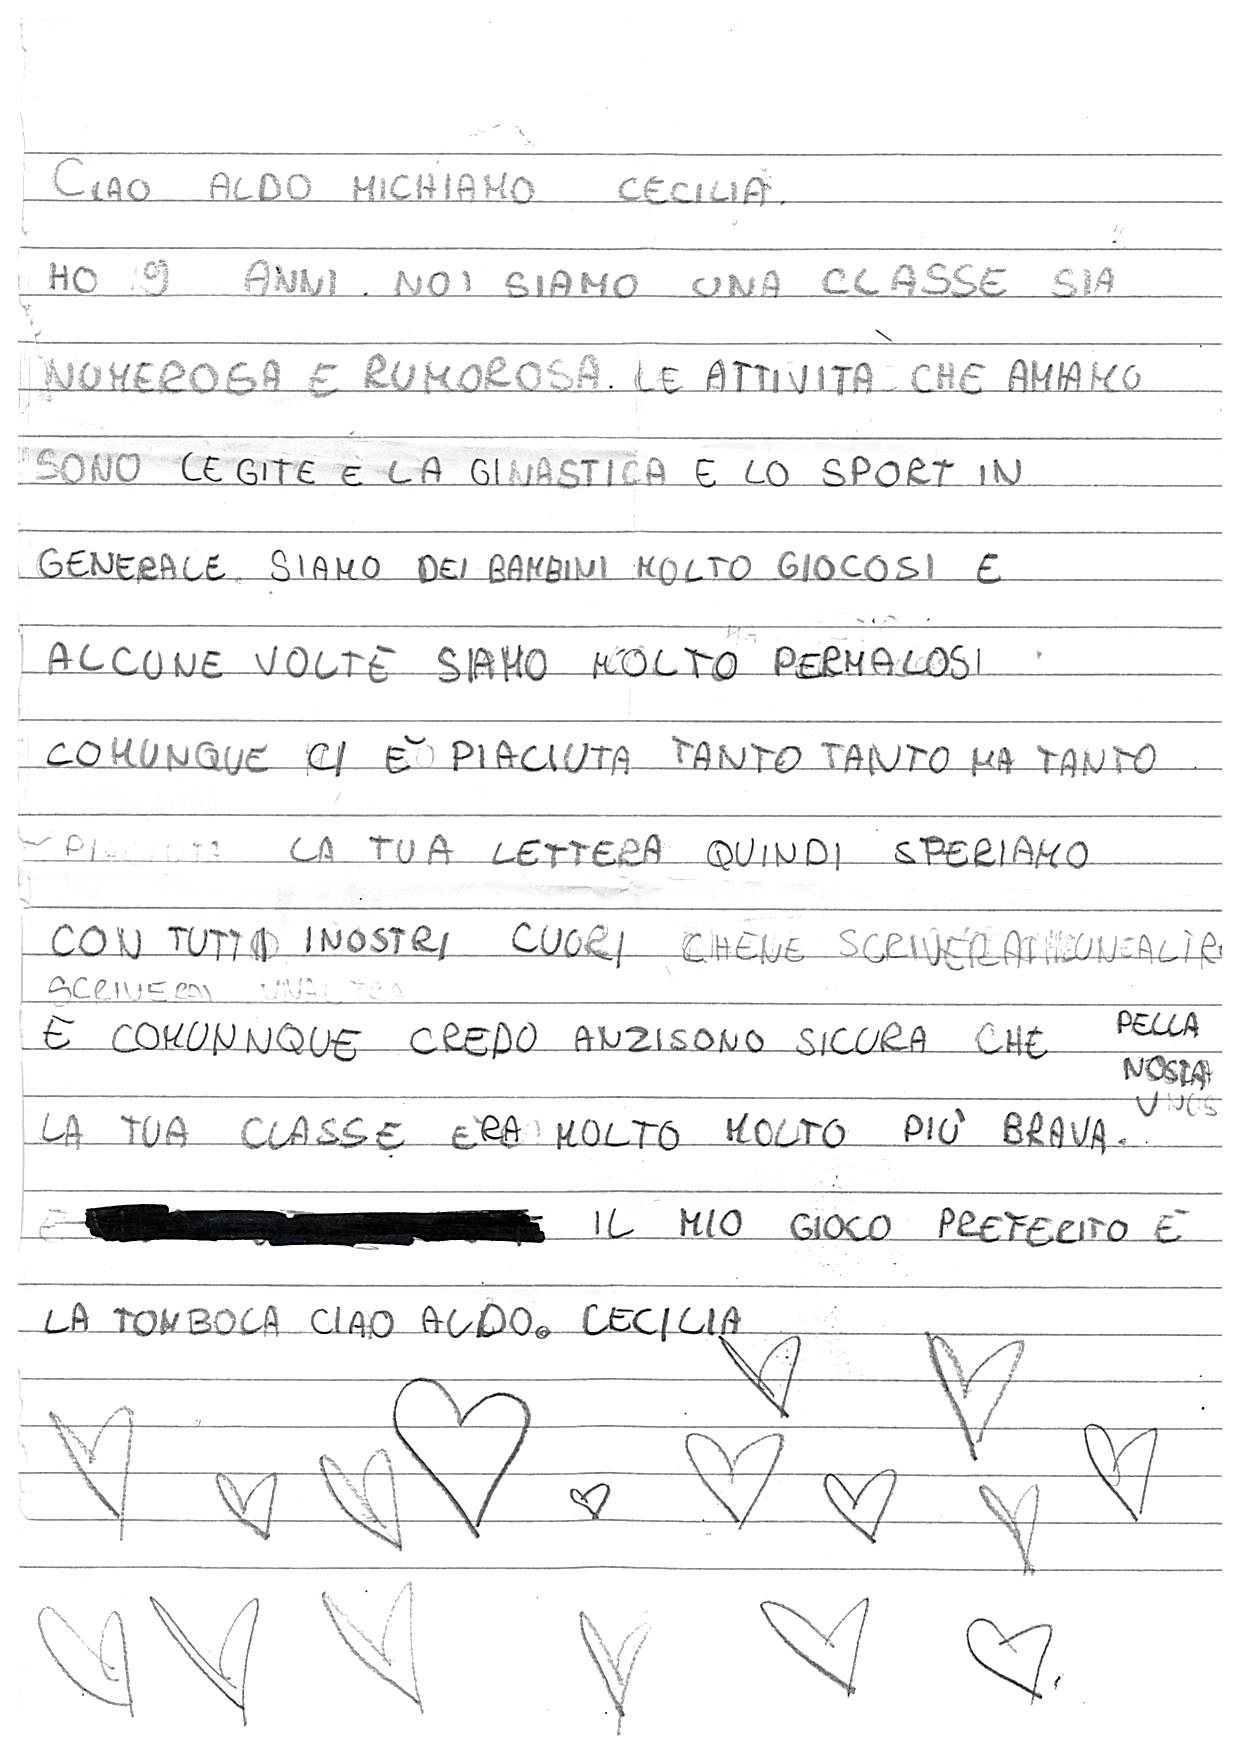 CIAO ALDO MICHIAMO CECILIA.
HO 9 ANNI. NOI SIAMO UNA CLASSE SIA
NUMEROSA E RUMOROSA. LE ATTIVITÀ CHE AMIAMO
SONO LE GITE E LA GINASTICA E LO SPORT IN
GENERALE. SIAMO DEI BAMBINI MOLTO GIOCOSI E
ALCUNE VOLTE SIAMO MOLTO PERMALOSI
COMUNQUE CI È PIACIUTA TANTO TANTO MA TANTO
LA TUA LETTERA QUINDI SPERIAMO
CON TUTTI INOSTRI CUORI CHENE SCRIVERAI
SCRIVERAI UNALTRA
E COMUNNQUE CREDO ANZISONO SICURA CHE
LA TUA CLASSE ERA MOLTO MOLTO PIÙ BRAVA.
DELLA
NOSTRA
IL MIO GIOCO PREFERITO È
LA TOMBOLA CIAO ALDO. CECILIA